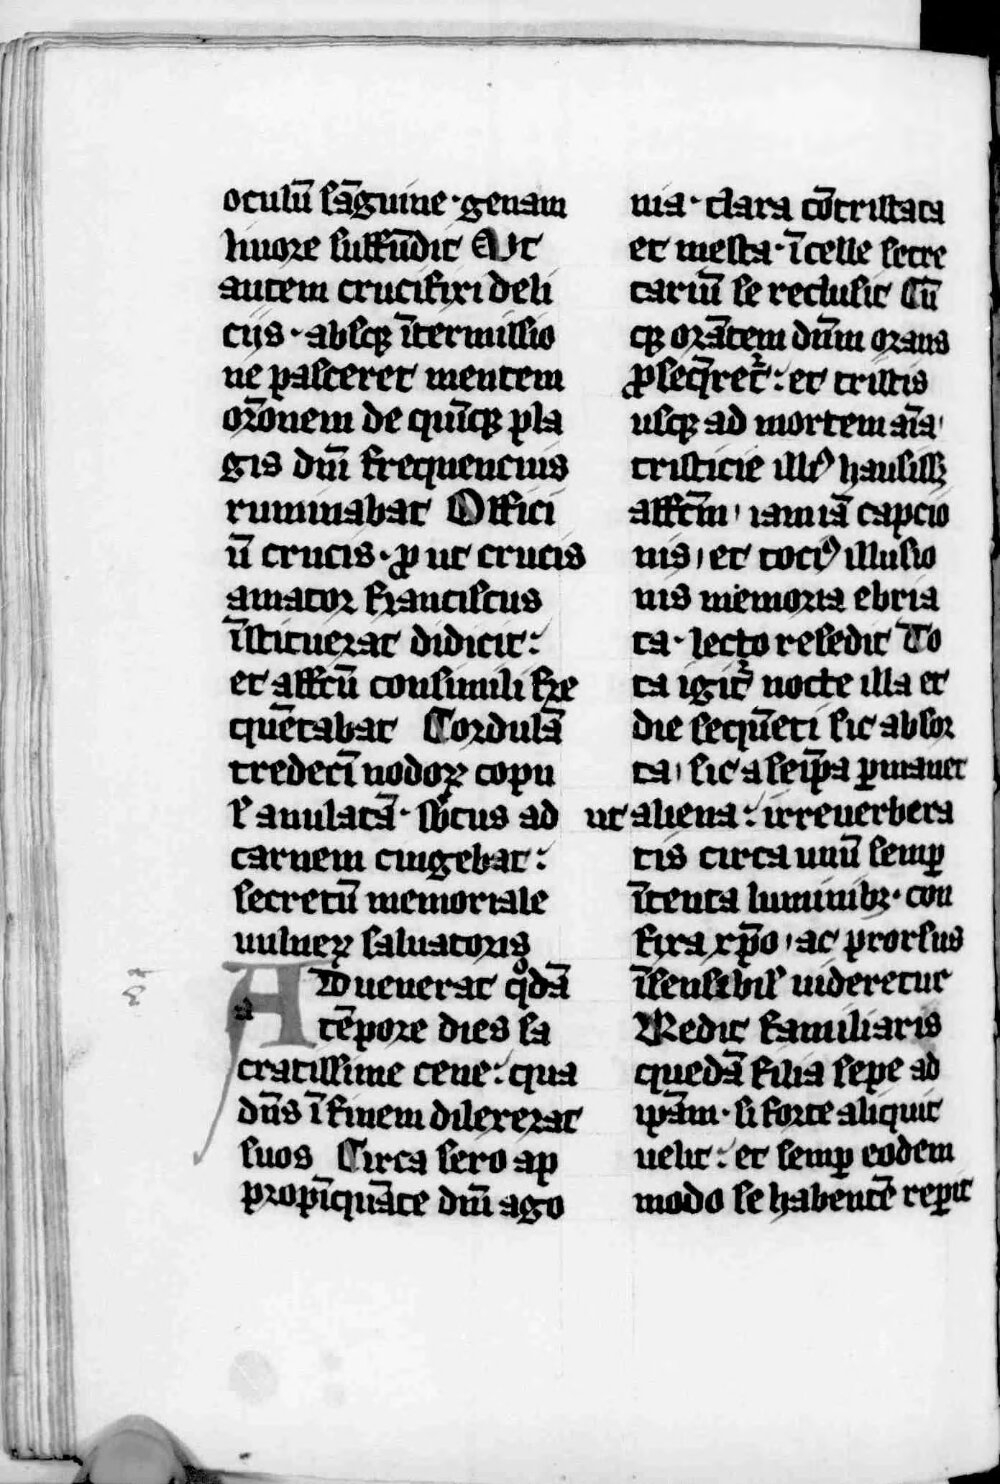 oculū sāguine · genam
liuore suffūdit Vt
autem crucifixi deli
cijs · absqꝫ ītermissio
ne pasceret mentem
orōnem de quīqꝫ pla
gis dn̄i frequencius
ruminabat Offici
ū crucis · ꝓ ut crucis
amator franciscus
īstituerat didicit :
et affc̄u consimili fre
quētabat Cordulā
tredecī nodoꝝ copu
l' anulatā · sb̄tus ad
carnem cingebat :
secretū memoriale
uulneꝝ saluatoris
ADuenerat qͦdā
tēpore dies sa
cratissime cene : qua
dn̄s ī finem dilexerat
suos Circa sero ap
propīquāte dn̄i ago
nia · clara cōtristata
et mesta · ī celle secre
tariū se reclusit Cū
qꝫ orātem dn̄m orans
ꝓseq̄ret᷑ : et tristis
usqꝫ ad mortem aīa
tristicie illiꝰ hausissꝫ
affc̄m ı iam iā captio
nis ı et tociꝰ illusio
nis memoria ebria
ta · lecto resedit To
ta igit᷑ nocte illa et
die sequēti sic absor
ta ı sic a seip̄a ꝑmanet
ut aliena : irreuerbera
tis circa unū semꝑ
ītenta luminibꝫ · con
fixa xp̄o ı ac prorsus
īsensibil' uideretur
Redit familiaris
quedā filia sepe ad
ip̄am · si forte aliquit
uelit : et semꝑ eodem
modo se habentē reꝑit